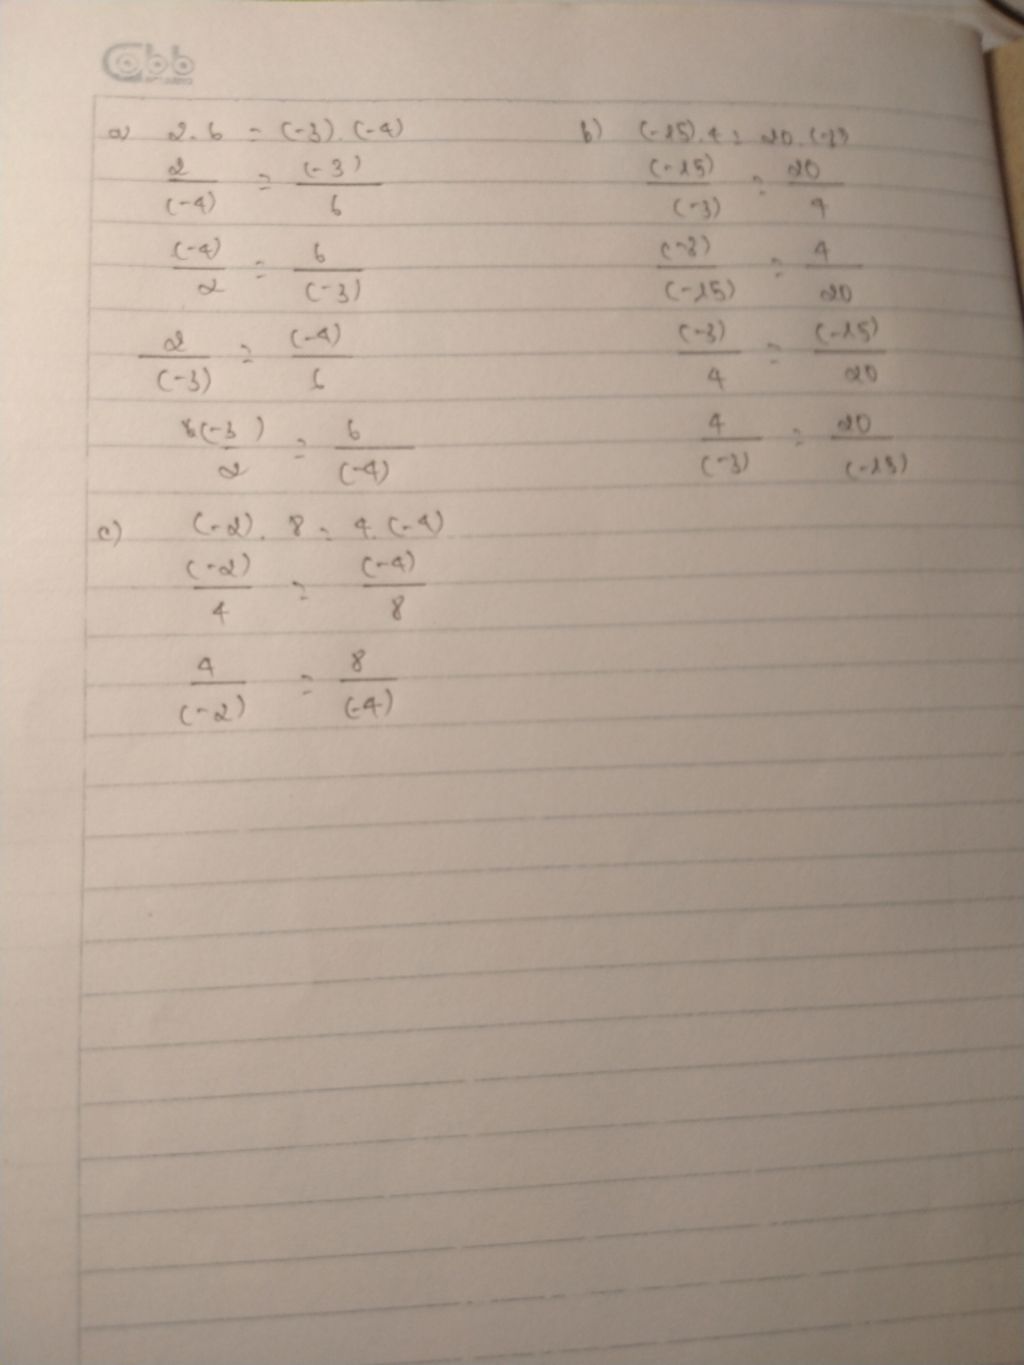 Cabb
a) 2.6 = (-3).(-4)
2/(-4) = (-3)/6
(-4)/2 = 6/(-3)
2/(-3) = (-4)/6
(-3)/2 = 6/(-4)
b) (-15).4 = 20.(-3)
(-15)/(-3) = 20/4
(-3)/(-15) = 4/20
(-3)/4 = (-15)/20
4/(-3) = 20/(-15)
c) (-2).8 = 4.(-4)
(-2)/4 = (-4)/8
4/(-2) = 8/(-4)